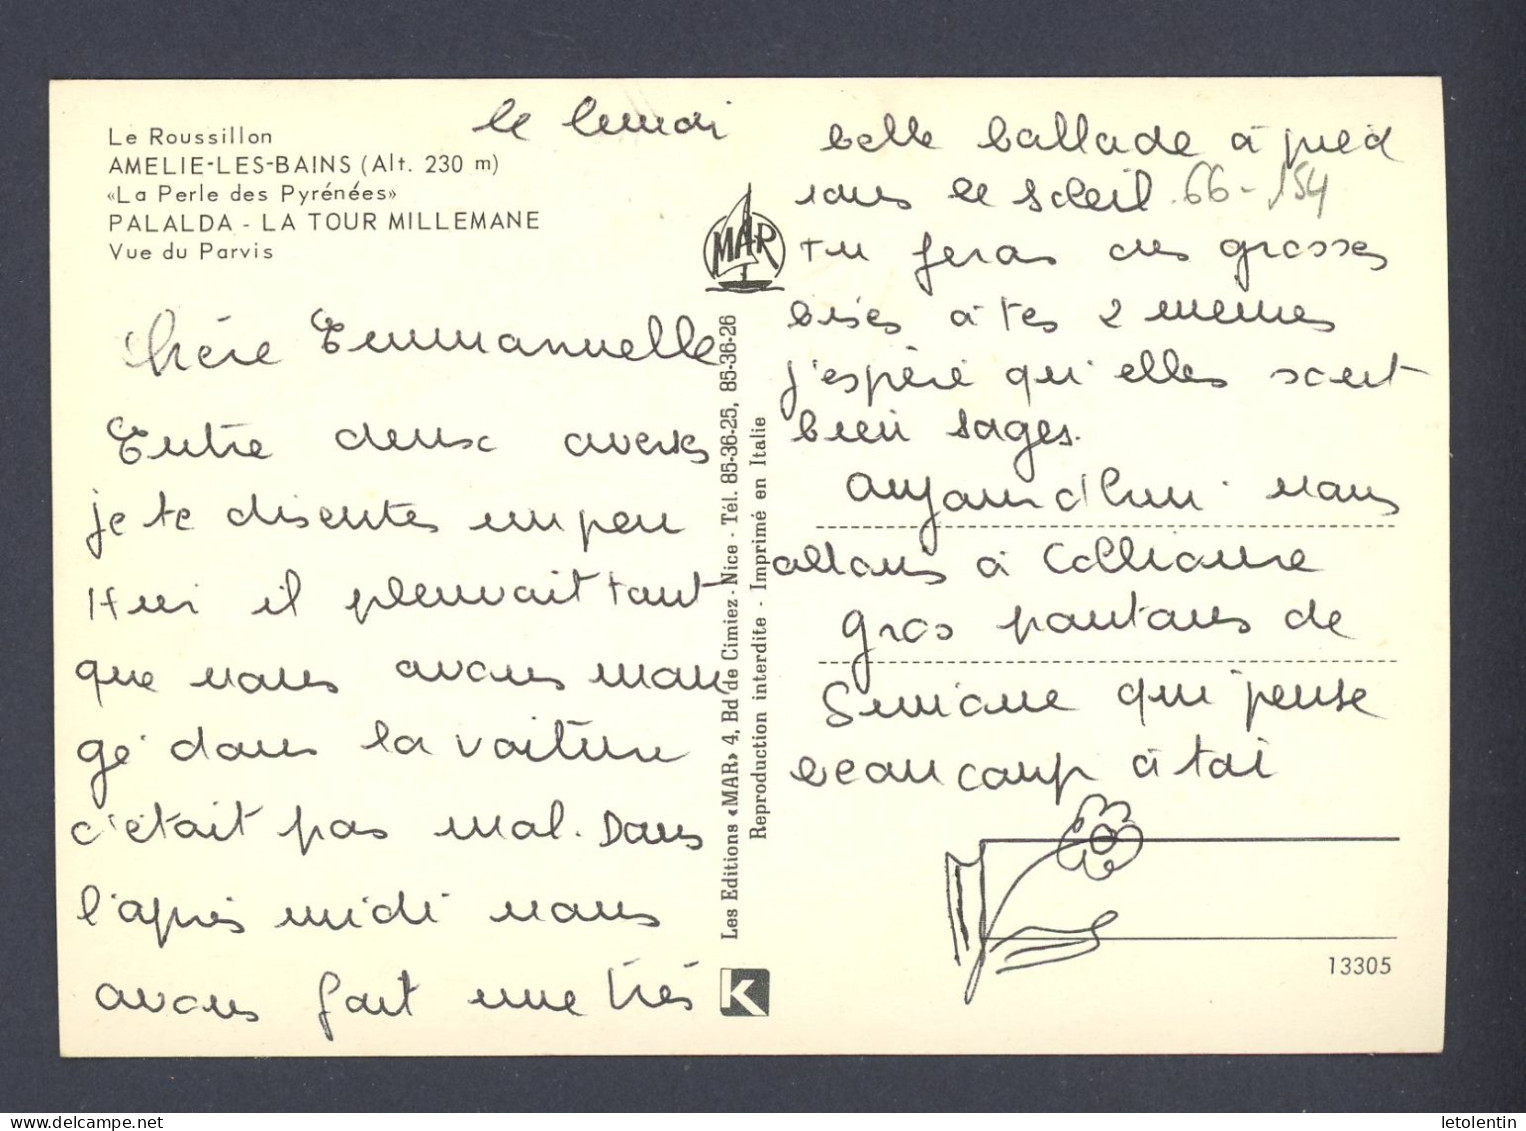 Le Roussillon
AMELIE-LES-BAINS (Alt. 230 m)
«La Perle des Pyrénées»
PALALDA - LA TOUR MILLEMANE
Vue du Parvis
le lundi
Chère Emmanuelle
Entre deux averses
je te discutes un peu
Hier il pleuvait tant
que nous avons man
gé dans la voiture
c'était pas mal. Dans
l'après midi nous
avons fait une très
MAR
Les Editions «MAR» 4, Bd de Cimiez - Nice - Tél. 85-36-25, 85-36-26
Reproduction interdite - Imprimé en Italie
K
belle ballade à pied
sous le soleil. 66-154
Tu feras des grosses
bises à tes 2 memes
j'espère qu'elles sont
bien sages.
aujourd'hui nous
allons à Collioure
gros poutous de
Simone qui pense
beaucoup à toi
13305
letolentin